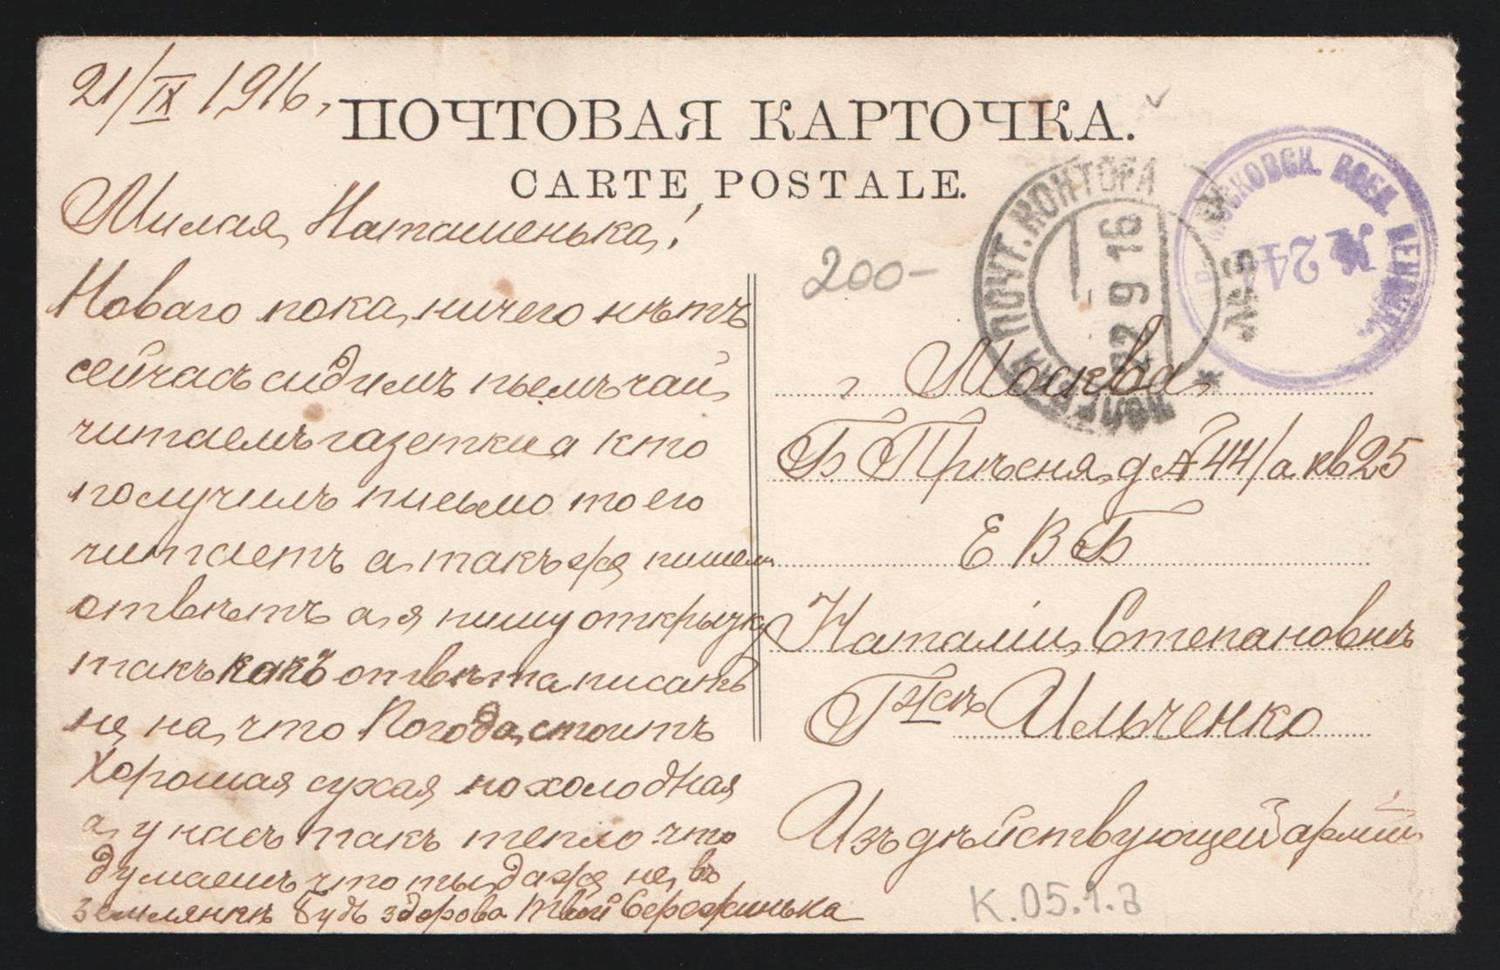 21/IX 1916,
ПОЧТОВАЯ КАРТОЧКА.
CARTE POSTALE.
Милая Наташенька!
Новаго пока ничего нѣтъ
сейчасъ сидимъ пьемъ чай
читаемъ газетки а кто
получилъ письмо то его
читаетъ а такъ же пишемъ
отвѣтъ а я пишу открытку
такъ какъ отвѣта писать
не на что Погода стоитъ
Хорошая сухая но холодная
а у насъ такъ тепло что
думаешь что ты даже не въ
землянкѣ Будь здорова твой Сереженька
200-
ПОЧТ. КОНТОРА
22 9 16
МОСКОВСК. ВОЕН. ЦЕНЗУР.
№ 244
г Москва
Б Прѣсня д № 44/а кв 25
Е В Б
Наталіи Степановнѣ
Г-жѣ Ильченко
Изъ дѣйствующей арміи
К.05.1.а